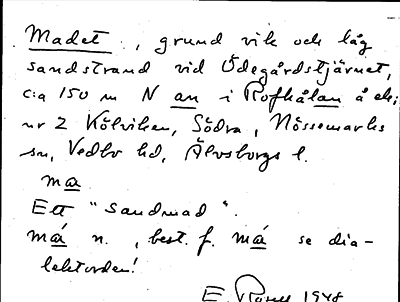 Madet :, grund vik och låg
sandstrand vid Ödegårdstjärnet,
c:a 150 m N an i å
nr 2 Kölviken, Södra, Nössemarks
sn, Vedbo hd, Älvsborgs l.
ma
Ett "sandmad".
má n., best. f. má se dia-
lektorden!
E. 1948